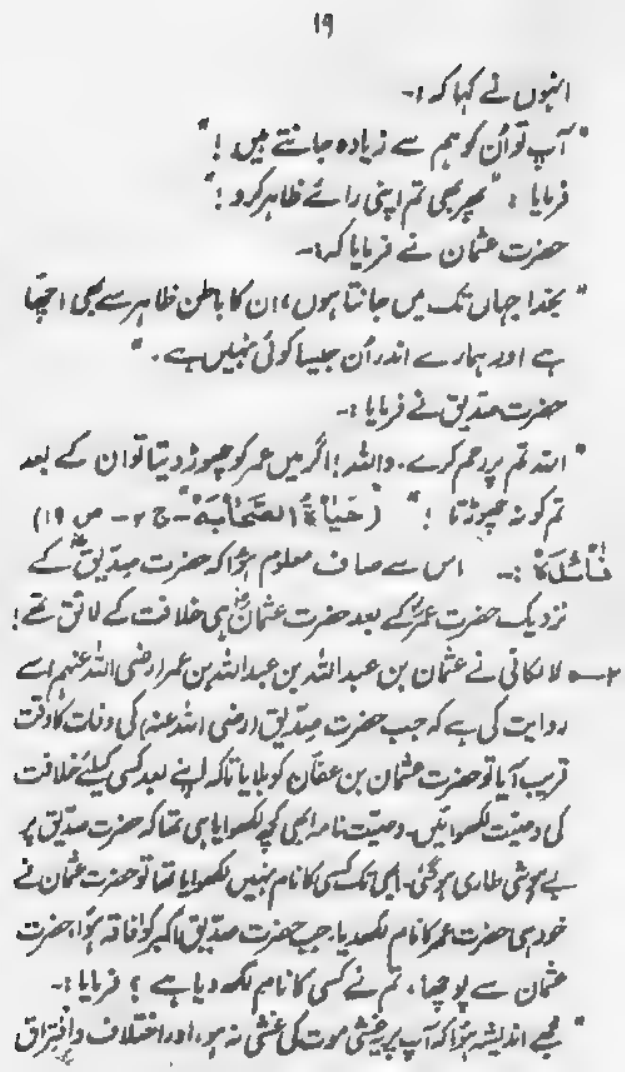 ۱۹
انہوں نے کہا کہ :-
"آپ تو اُن کو ہم سے زیادہ جانتے ہیں !"
فرمایا : "پھر بھی تم اپنی رائے ظاہر کرو !"
حضرت عثمان نے فرمایا کہ :-
"بخدا جہاں تک میں جانتا ہوں، ان کا باطن ظاہر سے بھی اچھا
ہے اور ہمارے اندر اُن جیسا کوئی نہیں ہے ۔"
حضرت صدیق نے فرمایا :-
"اللہ تم پر رحم کرے ۔ واللہ ! اگر میں عمر کو چھوڑ دیتا تو ان کے بعد
تم کو نہ چھوڑتا !" (حَیَاۃُ الصَّحَابَہ" - ج ۲ - ص ۱۹)
فَائِدَہ :- اس سے صاف معلوم ہؤا کہ حضرت صدیقؓ کے
نزدیک حضرت عمرؓ کے بعد حضرت عثمانؓ ہی خلافت کے لائق تھے !
۲— لالکائی نے عثمان بن عبداللہ بن عبداللہ بن عمر (رضی اللہ عنہم) سے
روایت کی ہے کہ جب حضرت صدیق (رضی اللہ عنہ) کی وفات کا وقت
قریب آیا تو حضرت عثمان بن عفّان کو بلایا تاکہ اپنے بعد کسی کیلئے خلافت
کی وصیّت لکھوائیں ۔ وصیّت نامہ ابھی کچھ لکھوایا ہی تھا کہ حضرت صدیق پر
بے ہوشی طاری ہو گئی ۔ ابھی تک کسی کا نام نہیں لکھوایا تھا تو حضرت عثمان نے
خود ہی حضرت عمر کا نام لکھدیا ۔ جب حضرت صدیق اکبر کو افاقہ ہؤا، حضرت
عثمان سے پوچھا، تم نے کسی کا نام لکھ دیا ہے ؟ فرمایا :-
"مجھے اندیشہ ہؤا کہ آپ پر یہ غشی موت کی غشی نہ ہو، اور اختلاف و افتراق